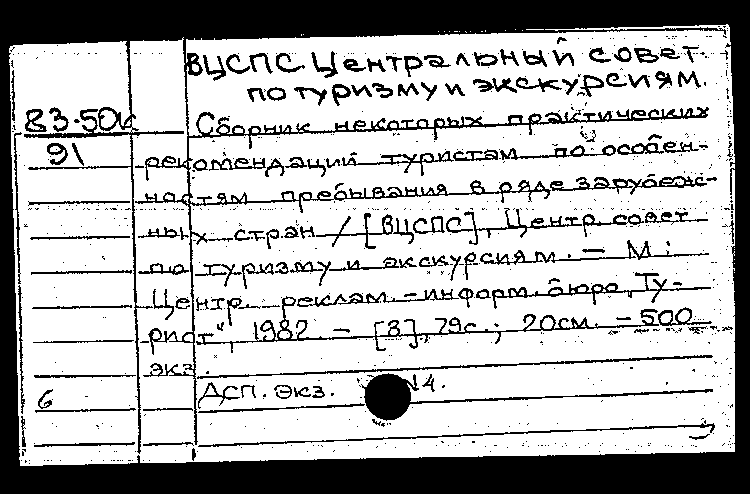 ВЦСПС. Центральный совет
по туризму и экскурсиям.
83-50к
91
Сборник некоторых практических
рекомендаций туристам по особен-
ностям пребывания в ряде зарубеж-
ных стран / [ВЦСПС], Центр. совет
по туризму и экскурсиям. — М:
Центр. реклам.-информ. бюро „Ту-
рист", 1982. - [3], 79с.; 20см. - 500
экз.
6
ДСП. Экз. N4.